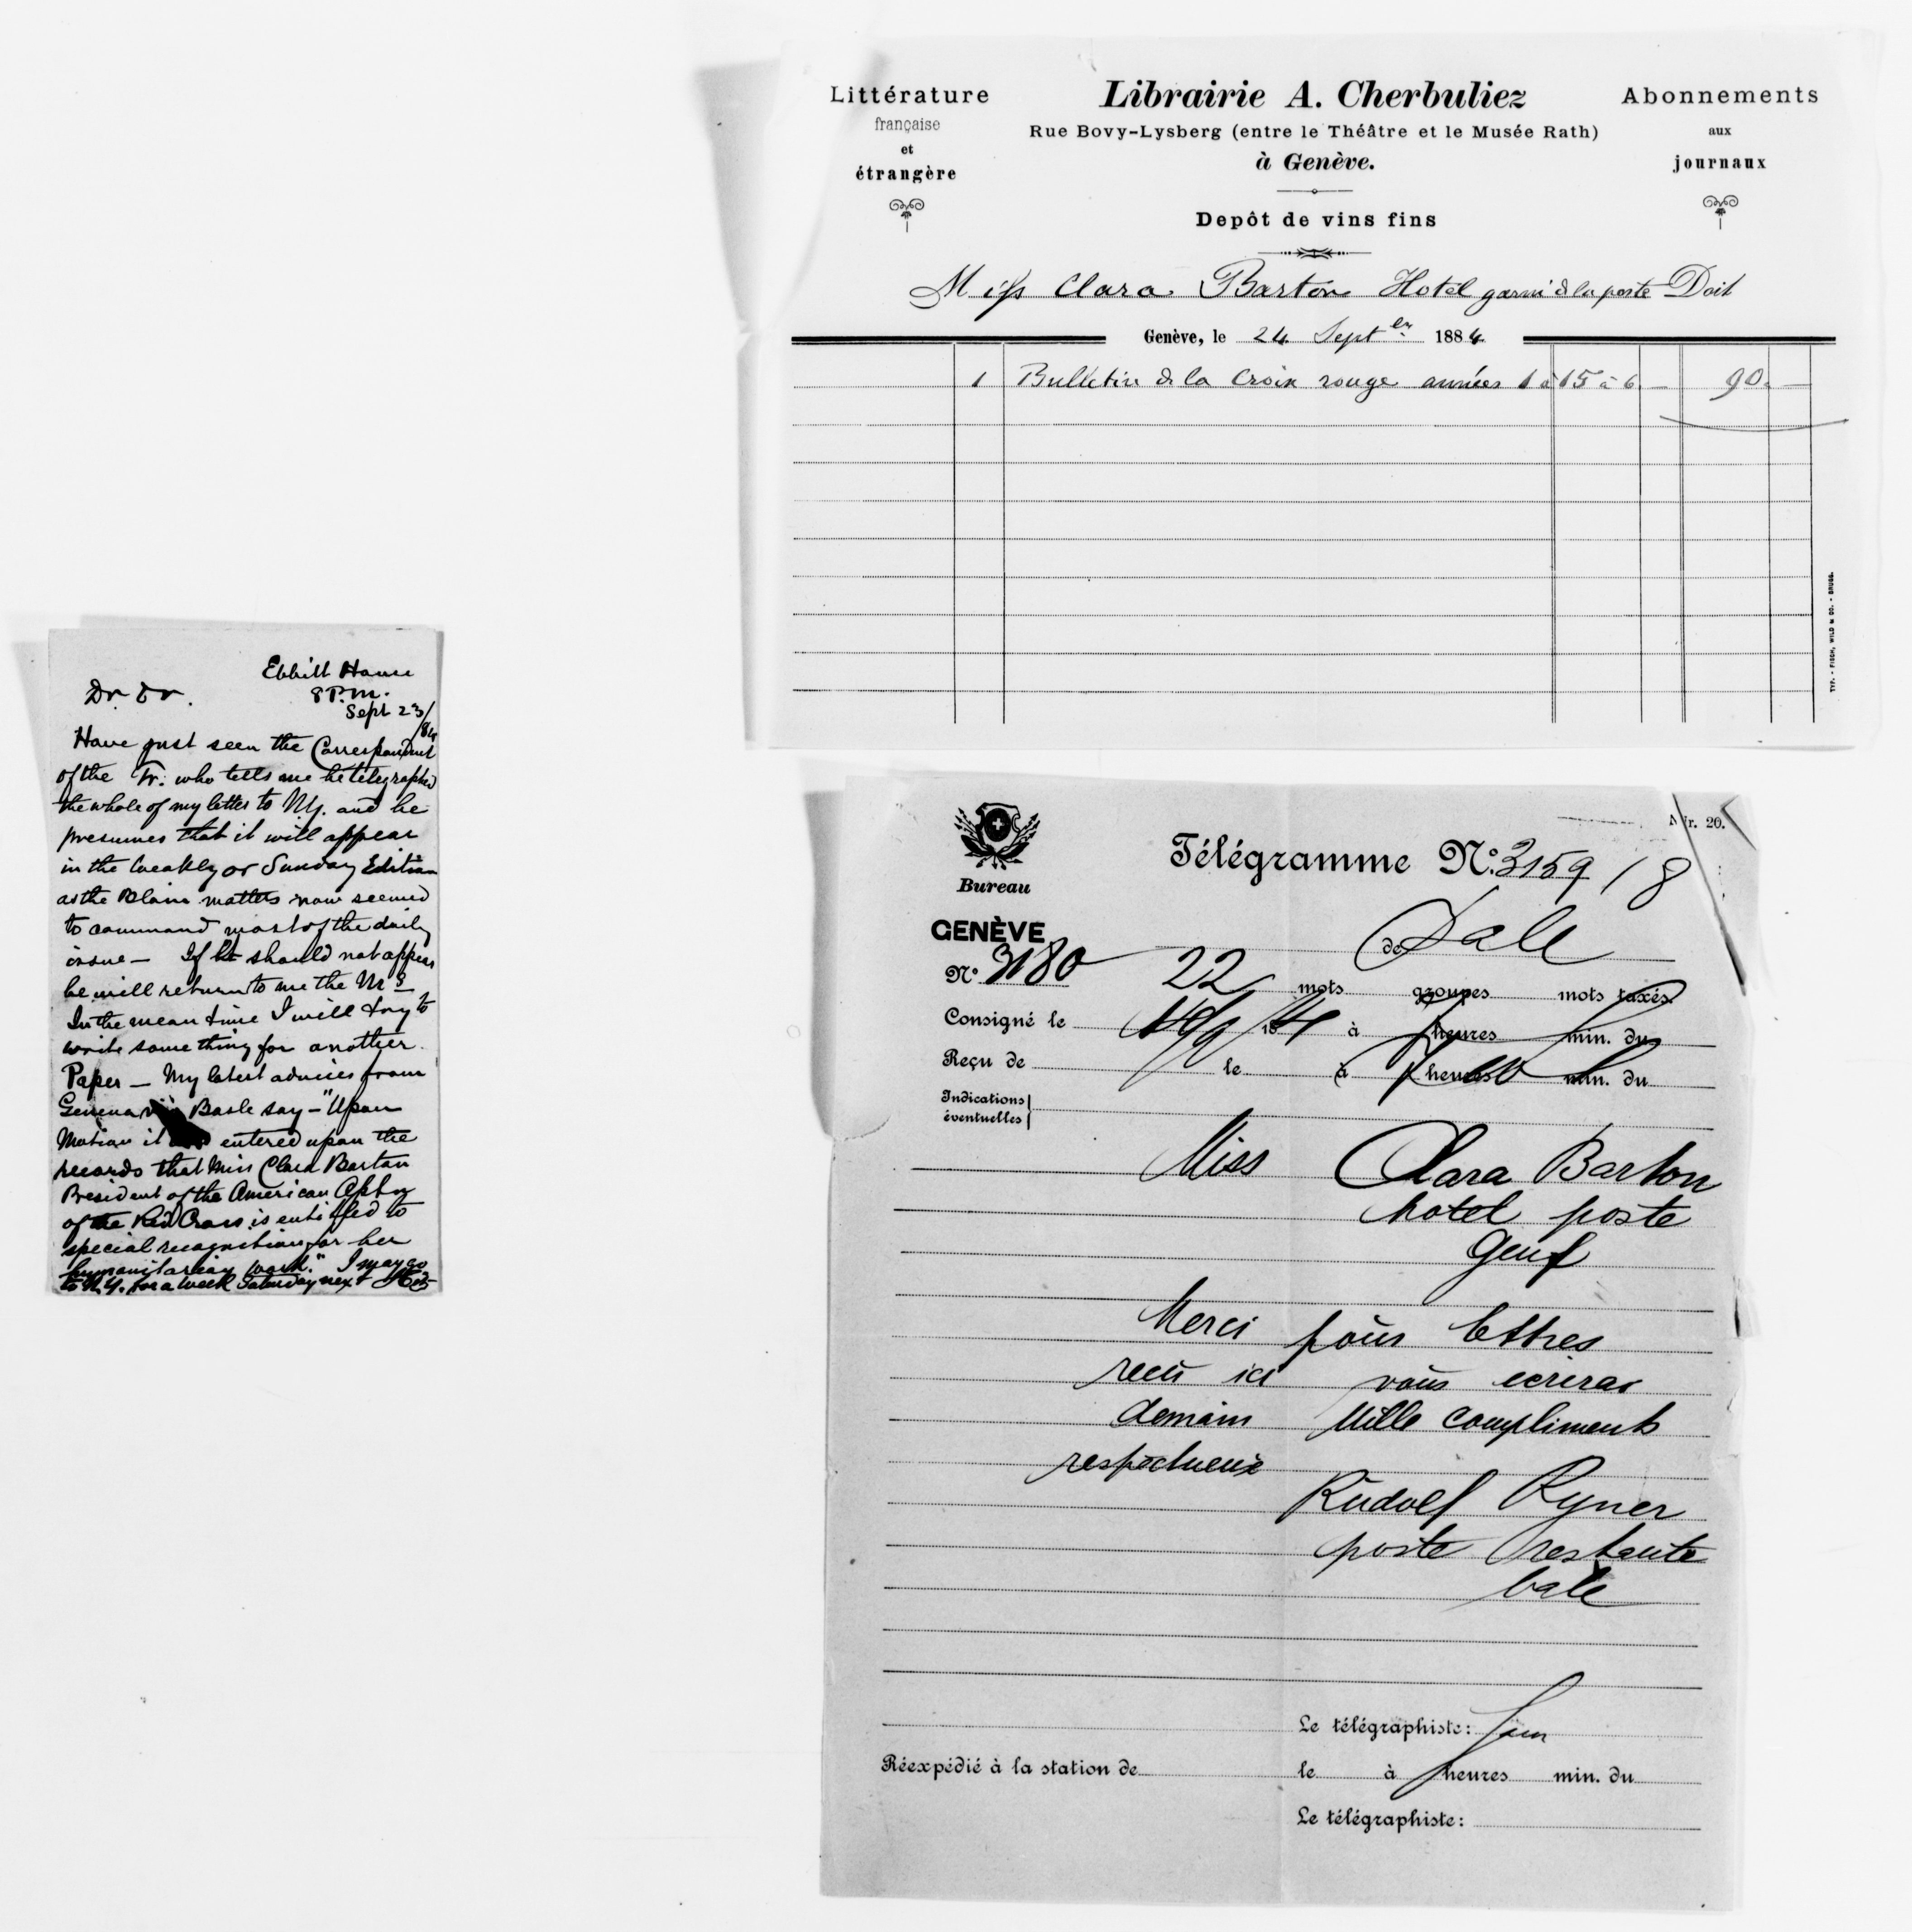 Ebbitt House
8 P.m.
Dr. Dr.
Sept 23/84
Have just seen the Correspondent
of the Tr. who tells me he telegraphed
the whole of my letter to N.Y. and he
presumes that it will appear
in the Weakly or Sunday Edition
as the Blain matters now seemed
to command most of the daily
issue — If it should not appear
he will return to me the M S
In the mean time I will try to
write some thing for another
Paper — My latest advices from
Geneva via Basle say — "Upon
Motion it entered upon the
records that Miss Clara Barton
President of the American Assn
of the Red Cross is entitled to
special recognition for her
humanitarian work." I may go
to N.Y. for a week Saturday next
Littérature
française
et
étrangère
Librairie A. Cherbuliez
Rue Bovy-Lysberg (entre le Théâtre et le Musée Rath)
à Genève.
Depôt de vins fins
Abonnements
aux
journaux
Miss Clara Barton Hotel garni de la poste Doit
Genève, le 24 Septbre 1884
1 Bulletin de la Croix rouge années 1 à 15 à 6 — 90. —
TYP. - FISCH, WILD & CO. - BRUGG.
Nr. 20.
Télégramme No. 3159 / 8
Bureau
GENÈVE
de Bale
No 3180 22 mots groupes mots taxés.
Consigné le à heures min. du
Reçu de le à heures min. du
Indications
éventuelles
Miss Clara Barton
hotel poste
Genf
Merci pour lettres
recu ici vous ecrirai
demain Mille compliments
respectueux
Rudolf Ryner
poste restante
bale
Le télégraphiste:
Réexpédié à la station de le à heures min. du
Le télégraphiste: